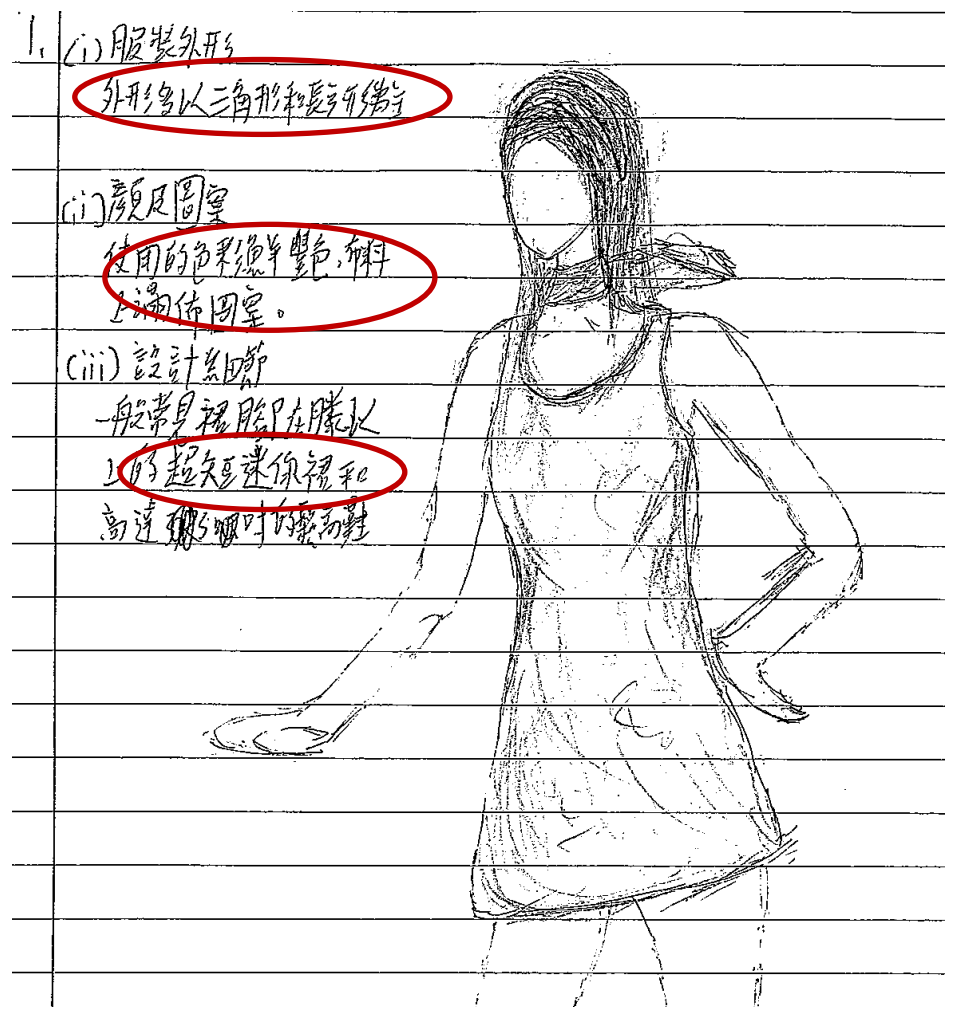 1. (i) 服裝外形
外形多以三角形和長方形為主
(ii) 顏及圖案
使用的色彩鮮豔,布料
上滿佈圖案。
(iii) 設計細節
一般常見裙腳在膝以
上的超短迷你裙和
高達 吋的鬆高鞋